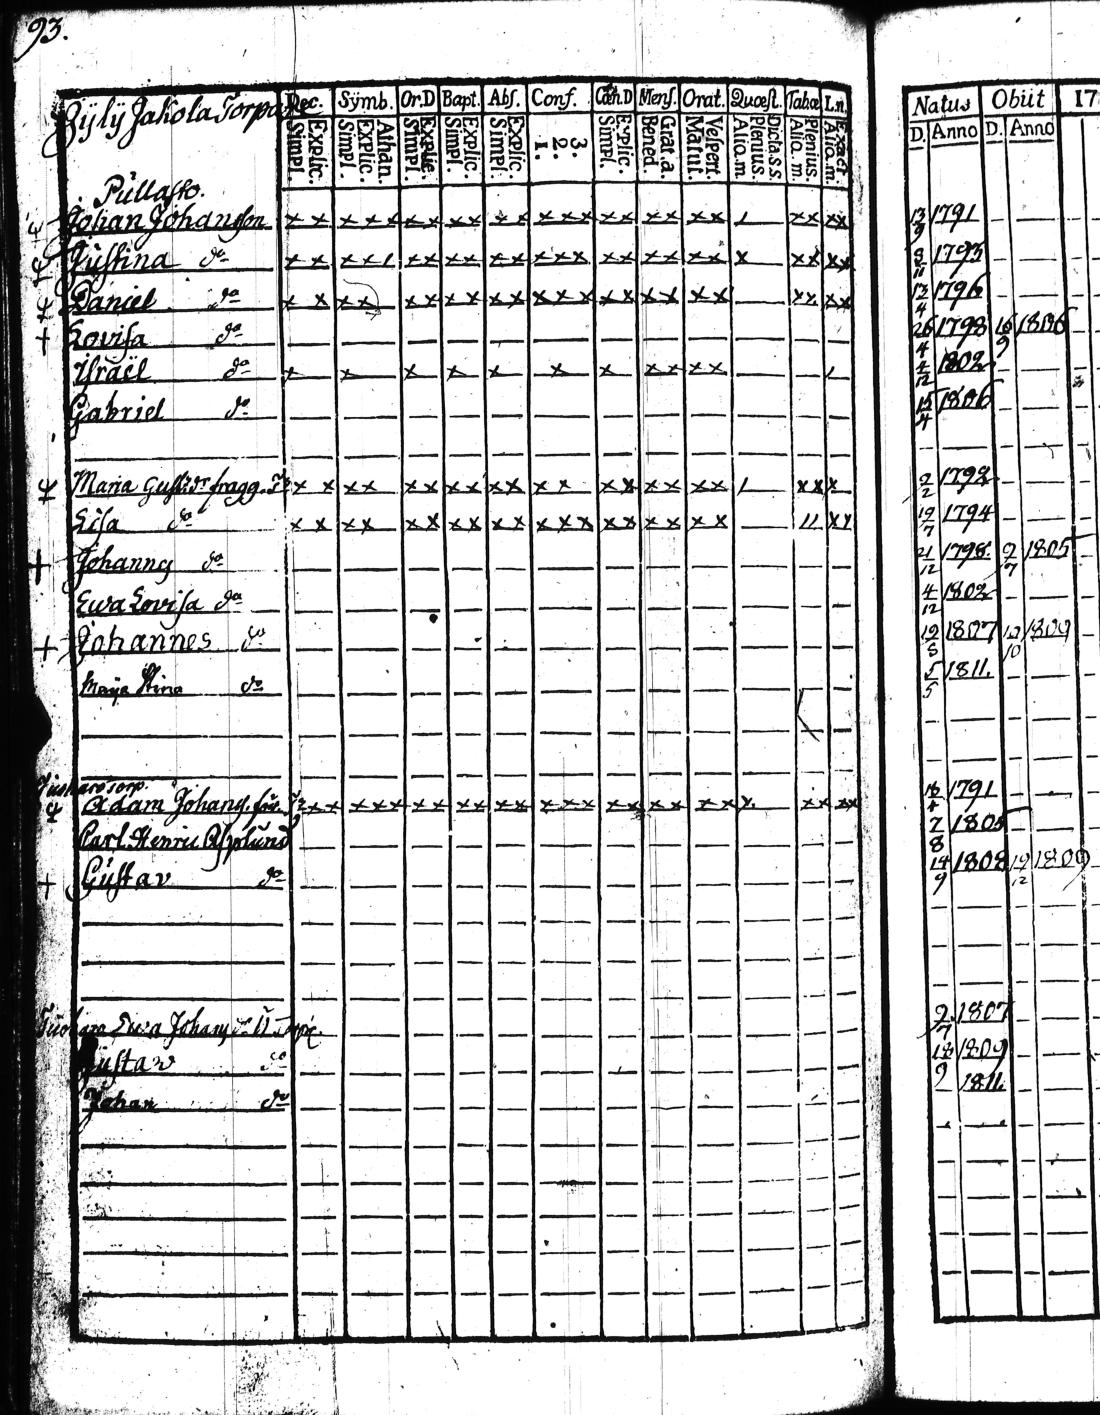 93.
Jakola Torpare
Dec. Symb. Or.D Bapt. Abs. Conf. Cœh.D Mens. Orat. Quæst. Tabæ L.n. Natus Obiit 17
Simpl. Explic. Simpl. Explic. Athan. Simpl. Explic. Simpl. Explic. Simpl. Explic. 1. 2. 3. Simpl. Explic. Bened. Grat. a. Matut. Vespert. Aliq.m. Plenius. Dicta s.s. Aliq.m. Plenius. Aliq.m. Exact. D. Anno D. Anno
Pullasto.
Johan Johansson x x x x x x x x x x x x x x x x x x x x x x x x x 13/9 1791
Justina do x x x x x x x x x x x x x x x x x x x x x x x x 8/11 1795
Daniel do x x x x x x x x x x x x x x x x x x x x x x x 13/4 1796
Lovisa do 26/4 1798 16/9 1806
Israël do x x x x x x x x x x x 4/12 1802
Gabriel do 15/4 1806
Maria Gust: dr x x x x x x x x x x x x x x x x x x x x x x 2/2 1792
Lisa do x x x x x x x x x x x x x x x x x x x x x 19/7 1794
Johanns do 21/12 1798. 9/7 1805
Ewa Lovisa do 4/12 1802
Johannes do 12/5 1807 10 1809
Maja Stina do 5/5 1811.
Adam Johans. x x x x x x x x x x x x x x x x x x x x x x x x x 18/4 1791
Carl Henric Asplund 7/8 1805
Gustav do 14/9 1808 19/12 1809
Ewa Johans 9/7 1807
Gustav do 18/9 1809
Johan do 1811.